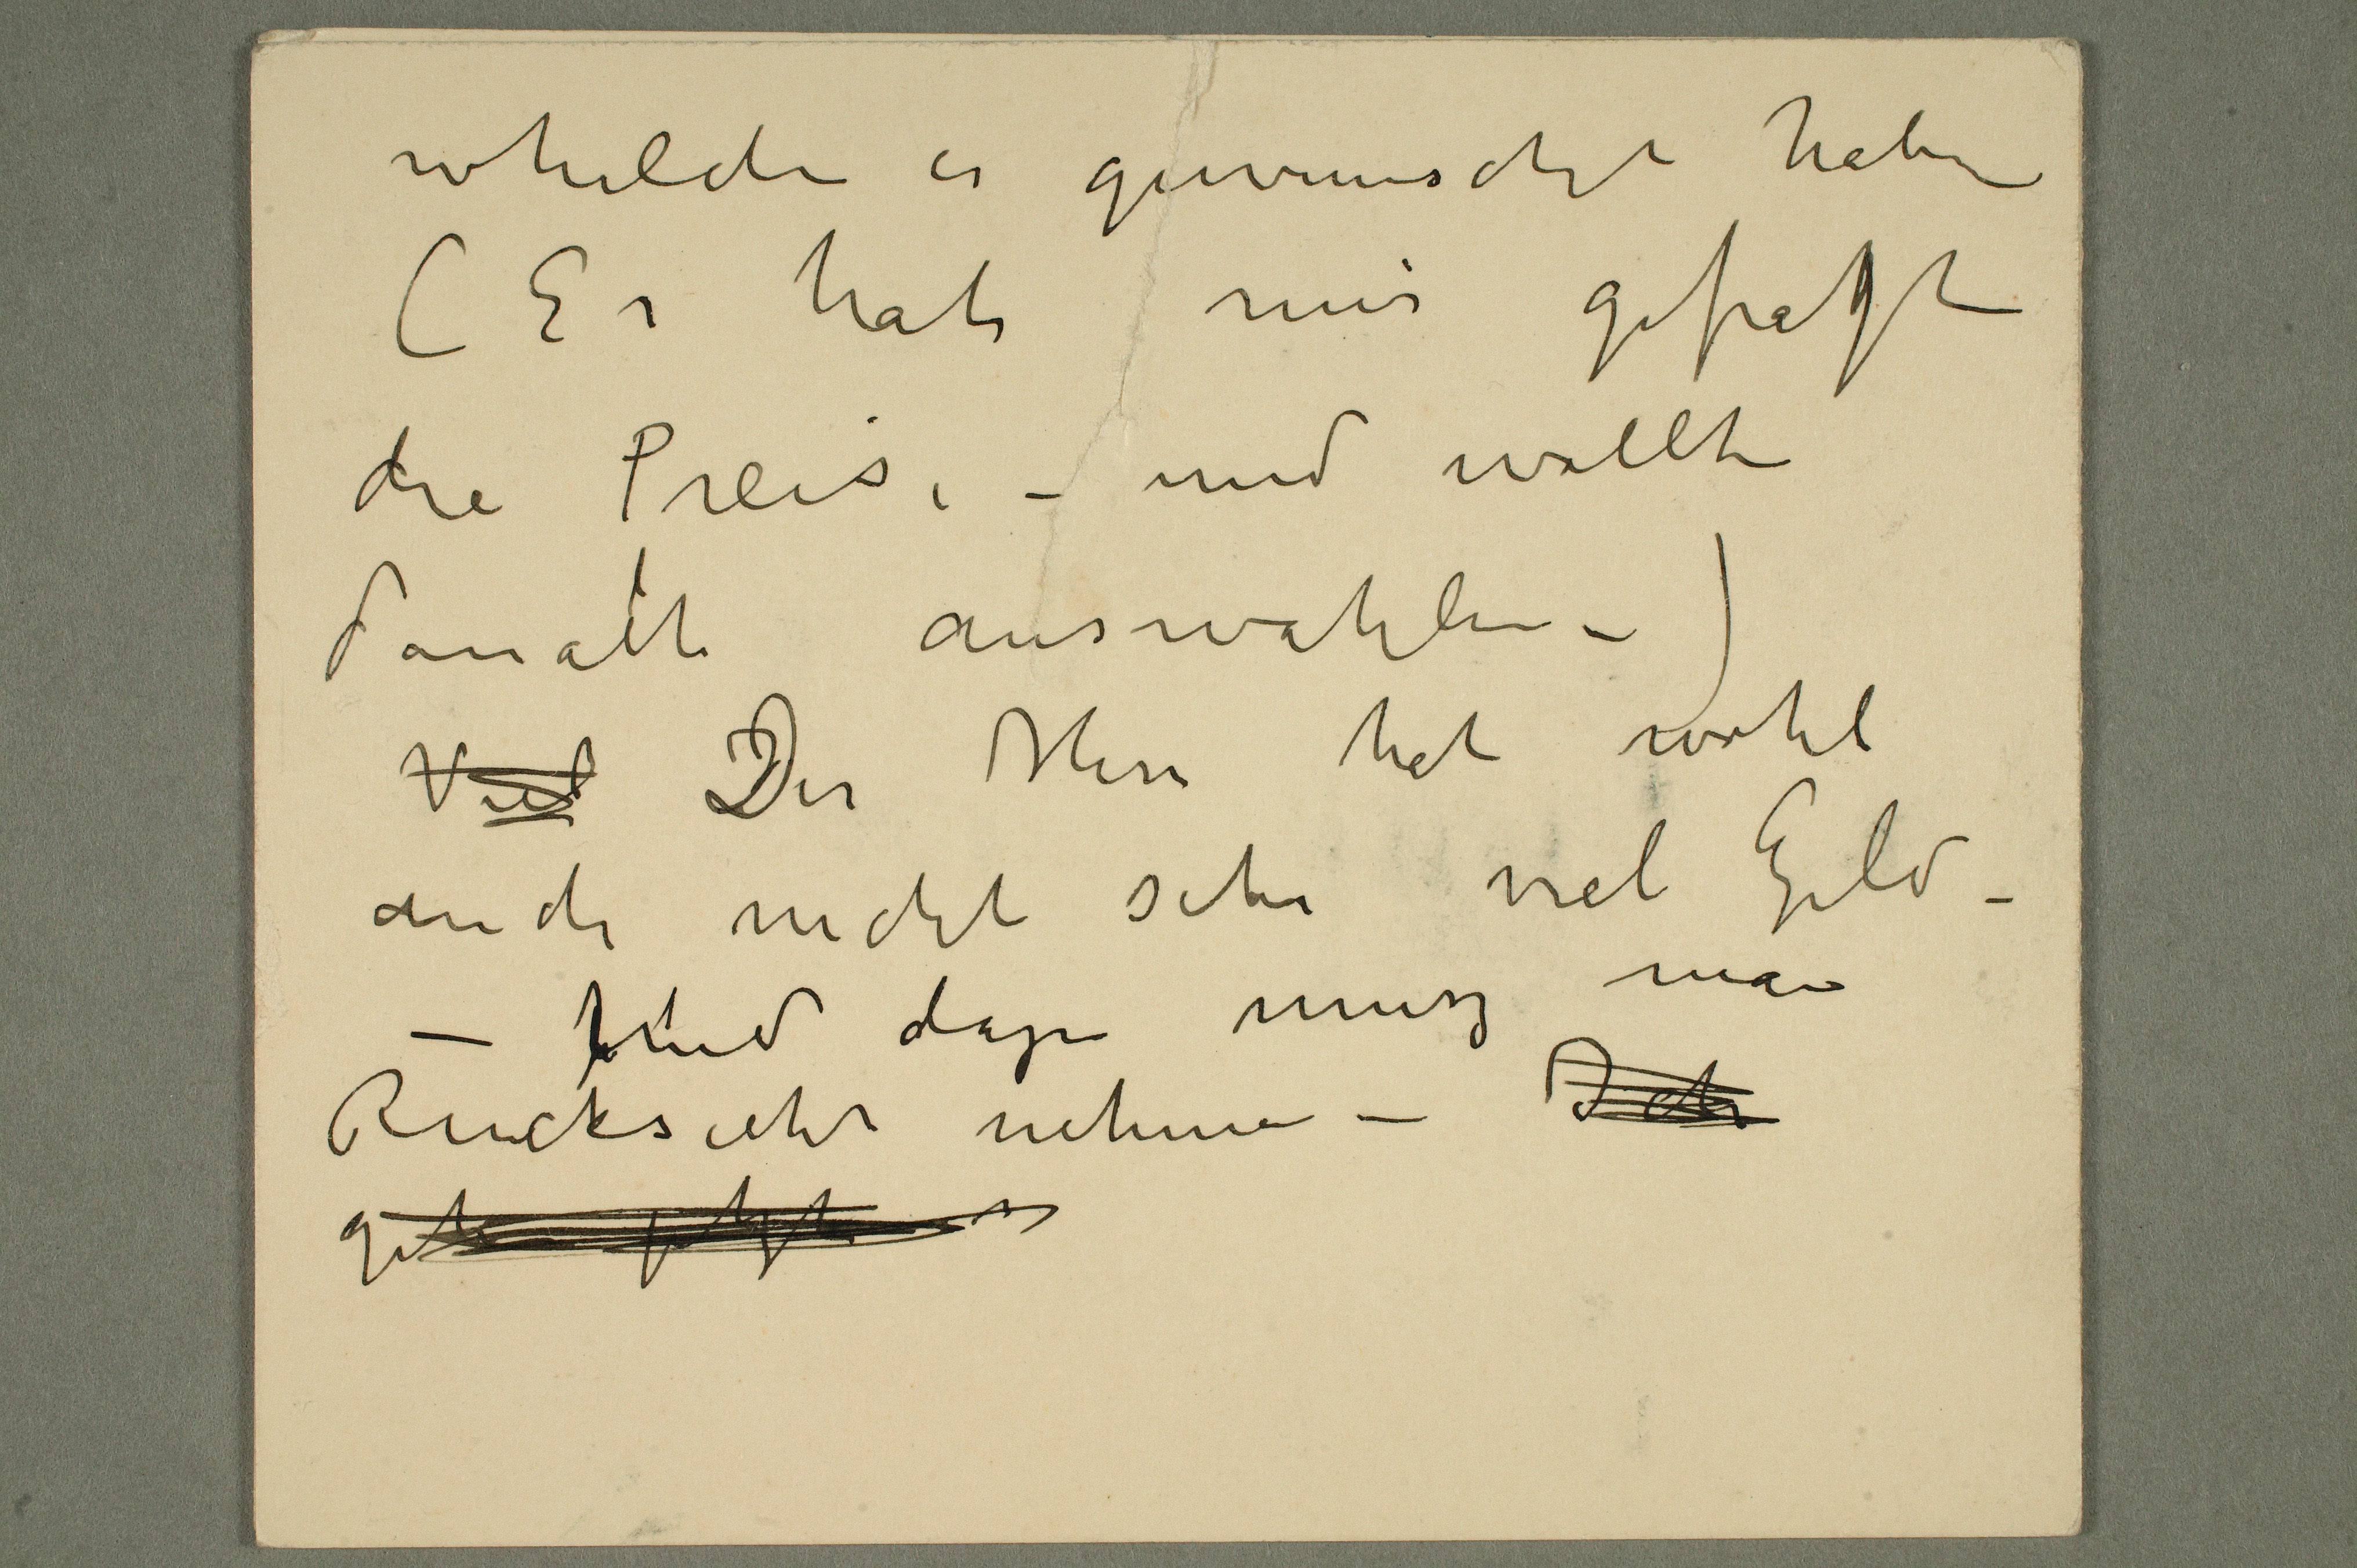 whelche er gewunscht haben
(Er hat mir gefragt
die Preise – und wollte
danach auswahlen –)
Viel Der Herr hat wohl
auch nicht sehr viel Geld –
– und dazu musz man
Rucksicht nehmen – Ich